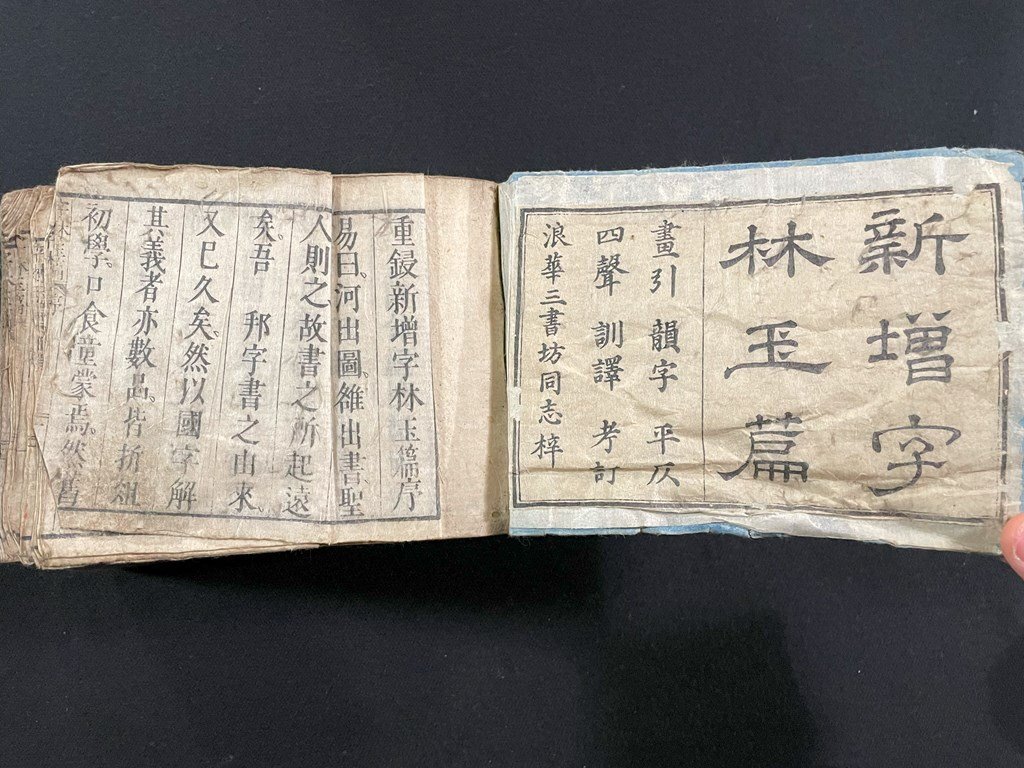 新增字
林玉篇
畫引 韻字 平仄
四聲 訓譯 考訂
浪華三書坊同志梓
重鋟新增字林玉篇序
易曰河出圖雒出書聖
人則之故書之所起遠
矣吾 邦字書之由來
又已久矣然以國字解
其義者亦數品皆折俎
初學口食童蒙焉然舊